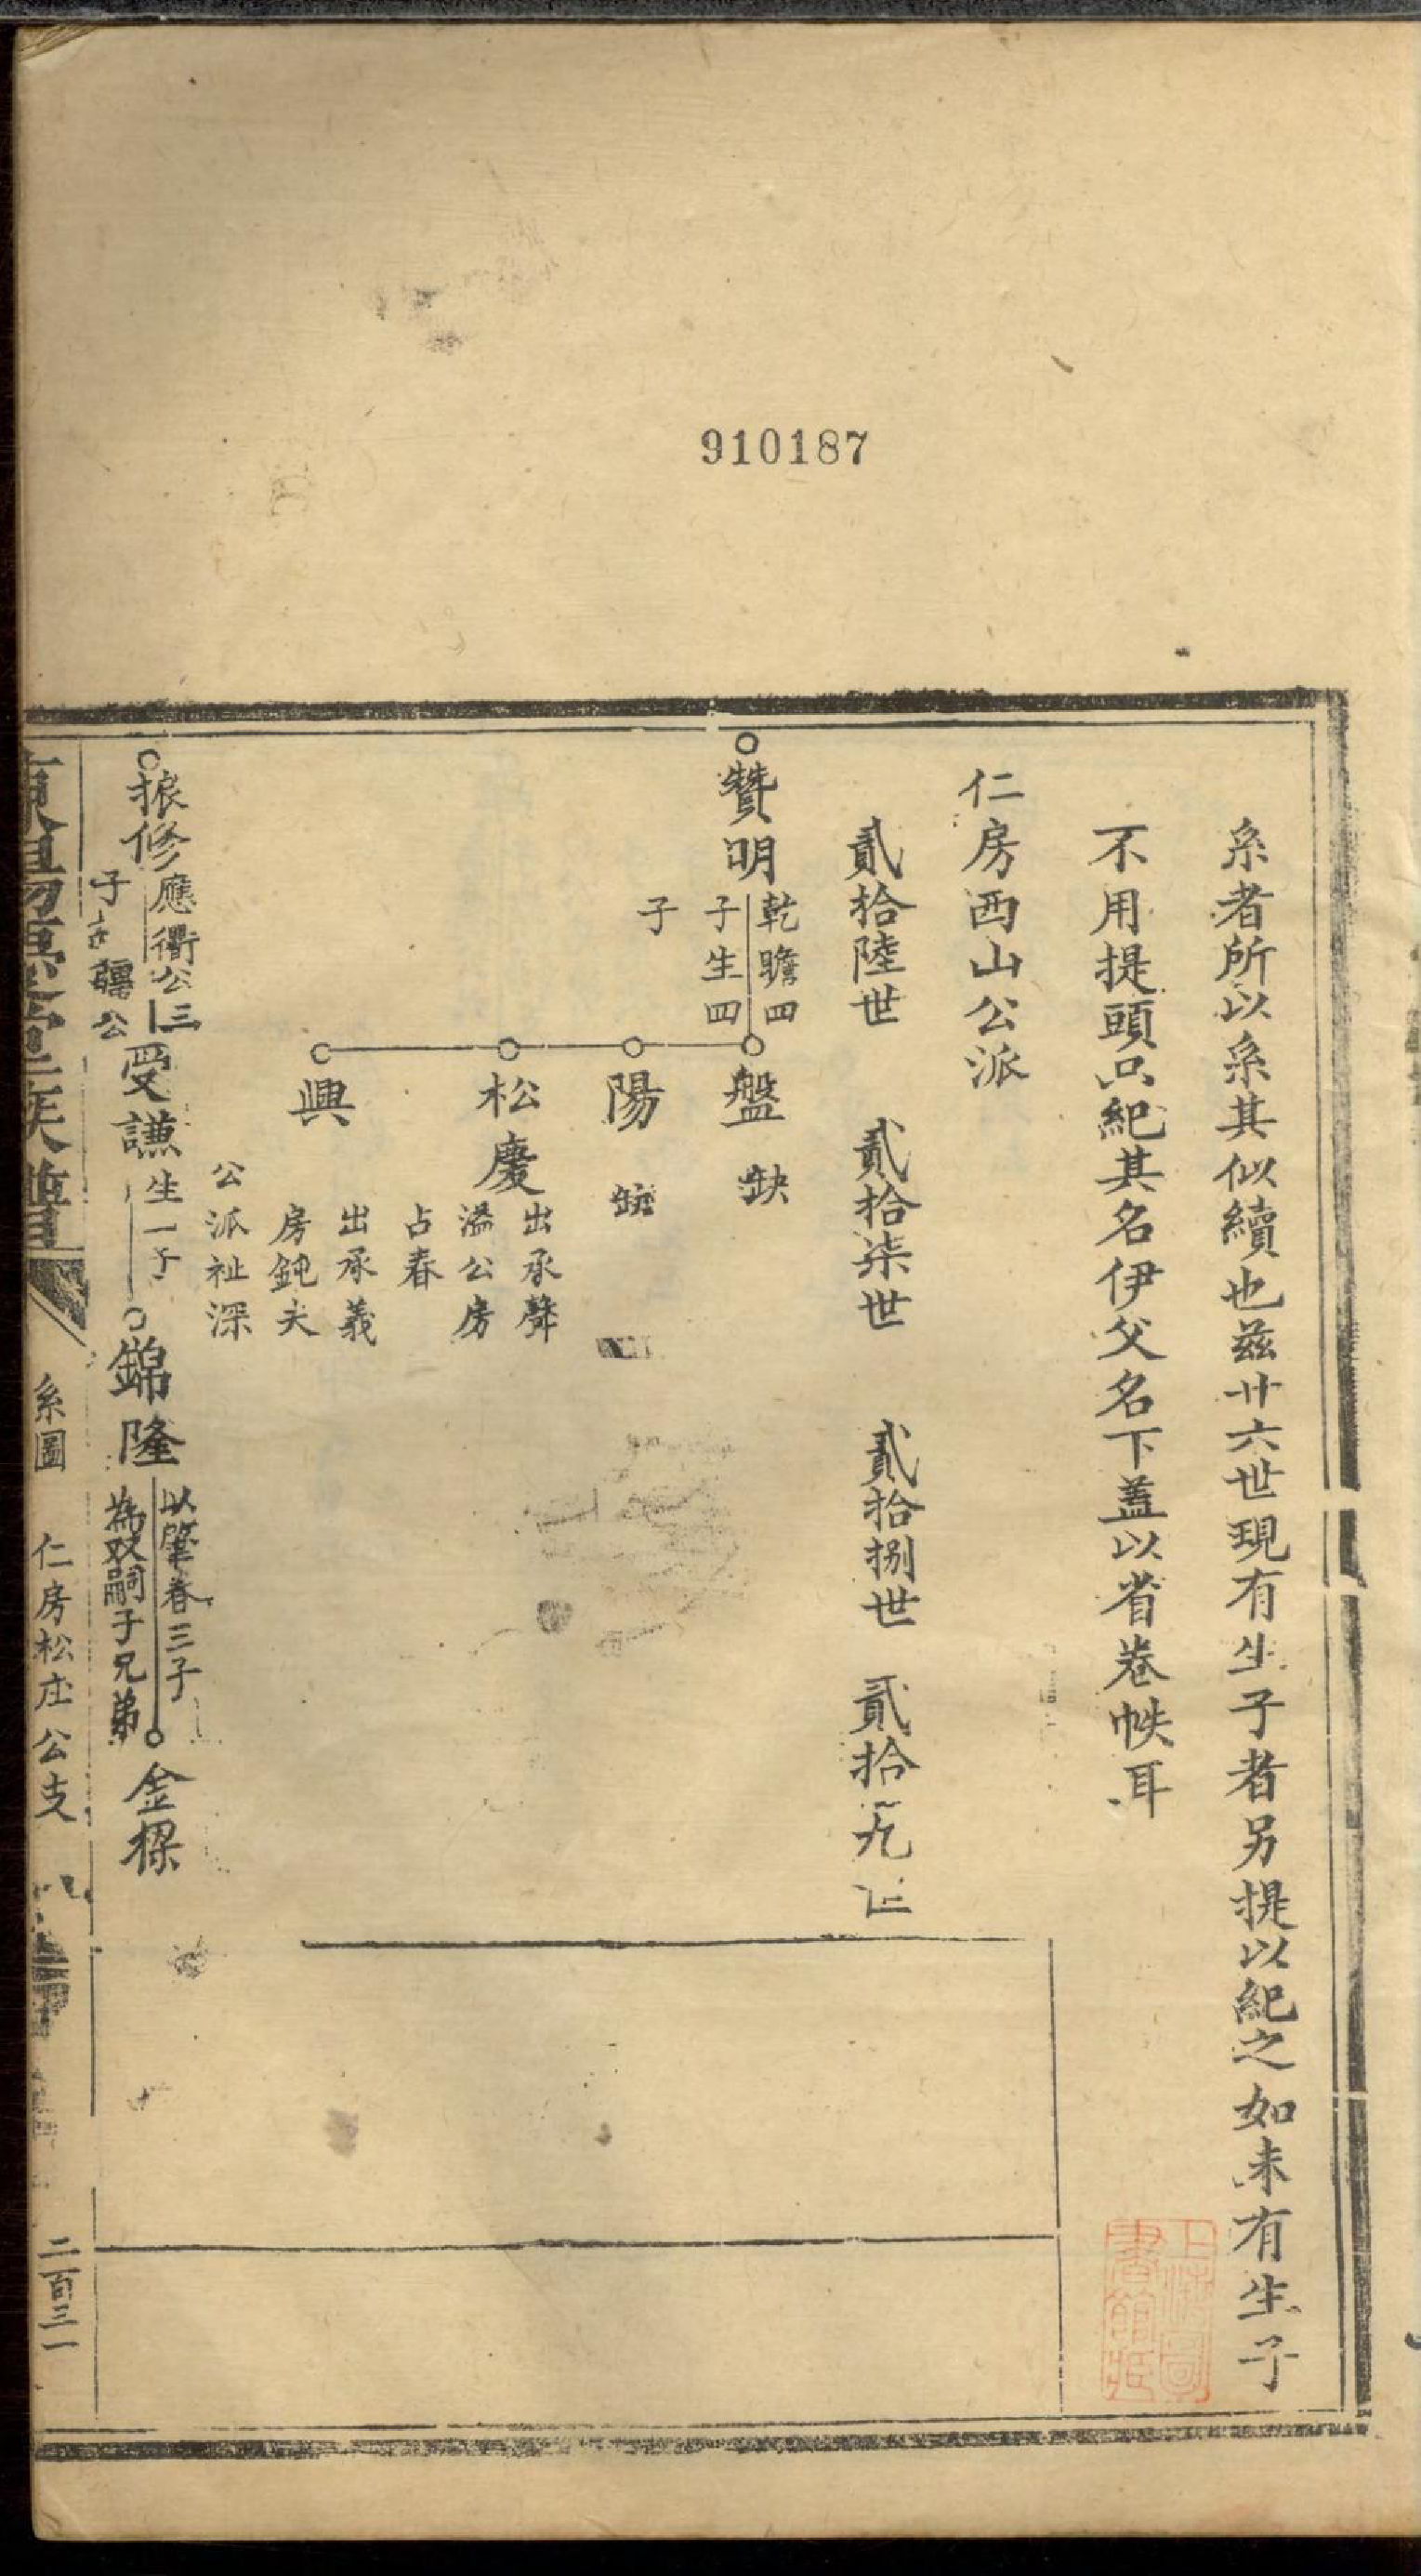 910187
糸者所以糸其似續也茲廿六世現有生子者另提以紀之如未有生子
不用提頭只紀其名伊父名下蓋以省卷帙耳
仁房西山公派
貳拾陸世
貳拾柒世
貳拾捌世
貳拾九世
贊明
乾瞻四
子生四
子
盤
缺
陽
缺
松慶
出承聲
溢公房
占春
興
出承義
房鈍夫
公派祉深
振修
應衢公三
子 疆公
受謙
生一子
錦隆
以肇春三子
為双嗣子兄弟
金樑
糸圖
仁房松庄公支
二百三一